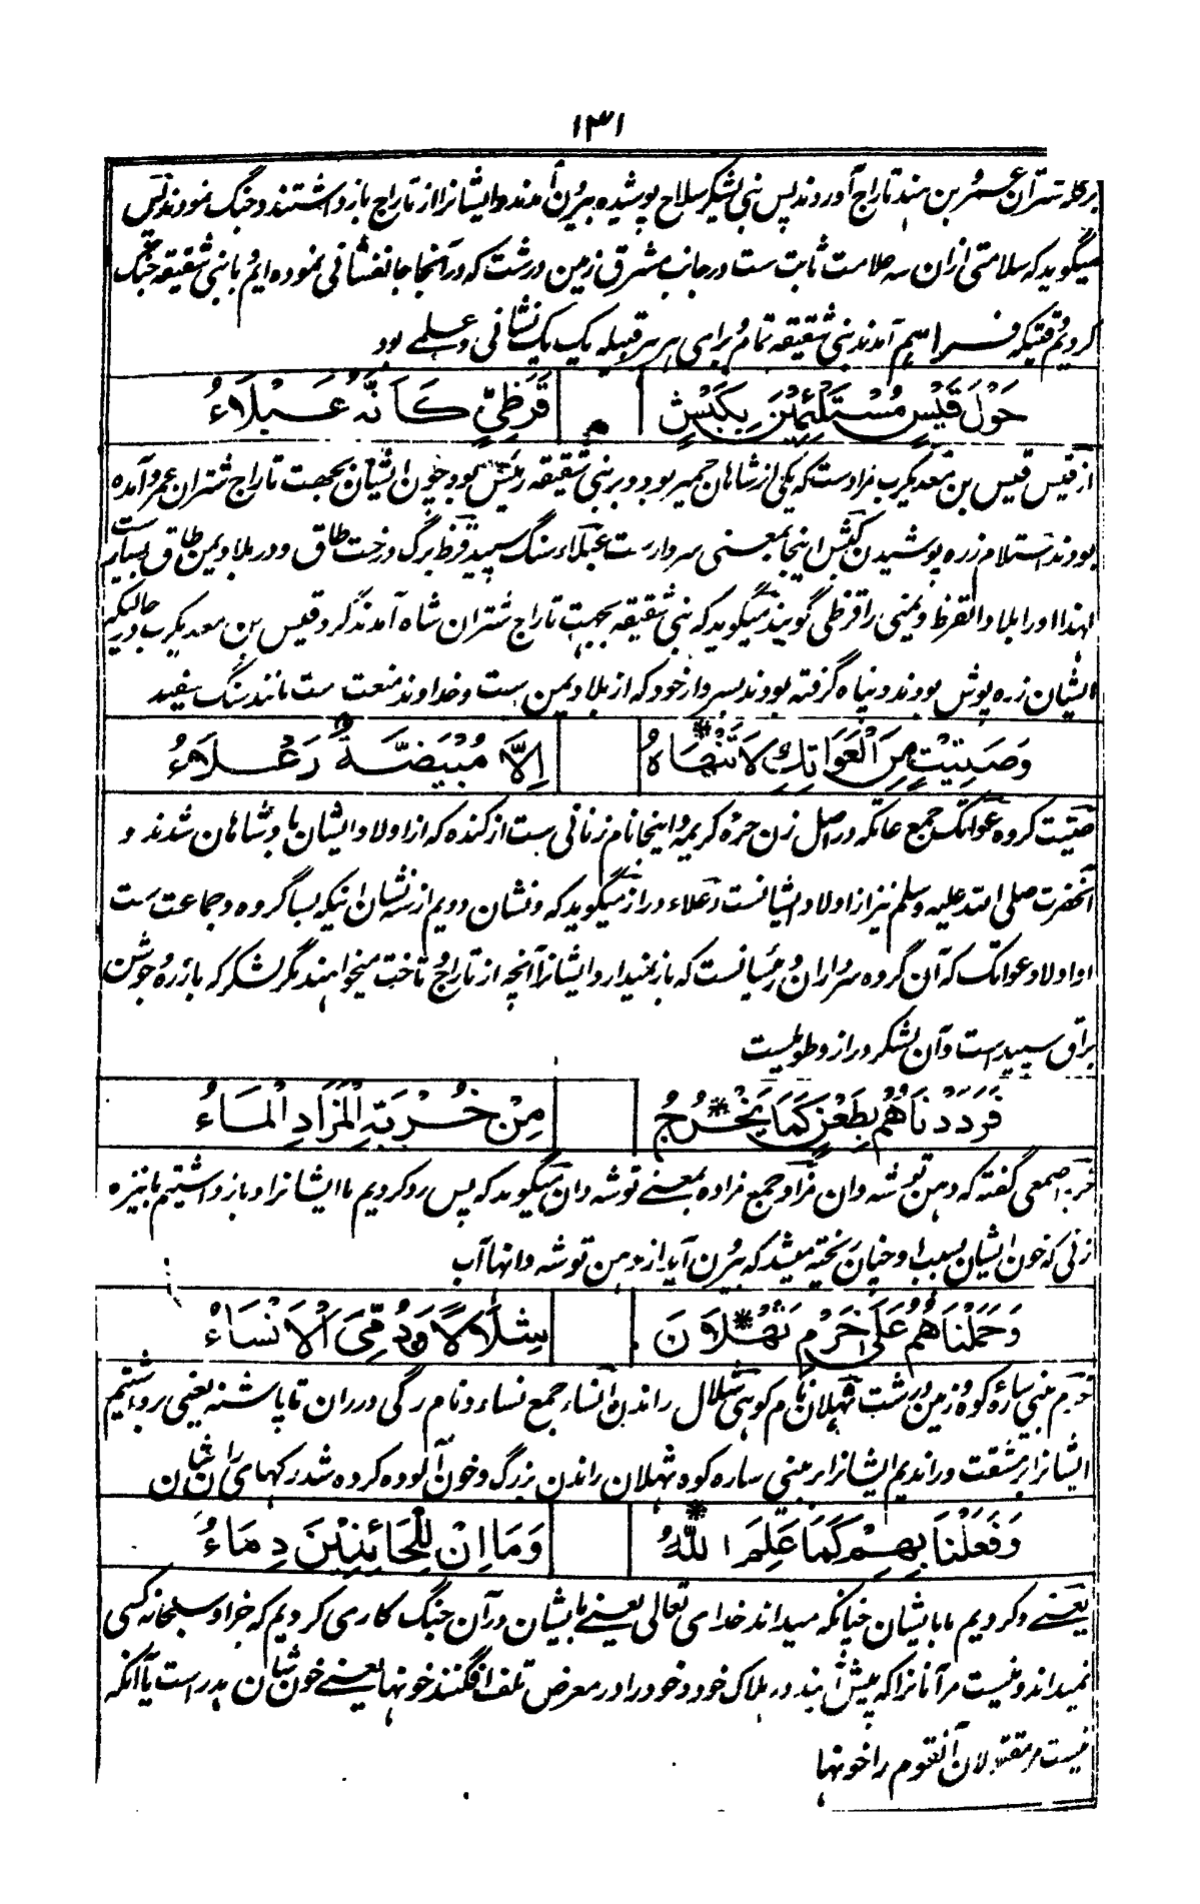 ۱۳۱
بر گله شتران عمر بن هند تاراج آوردند پس بنی یشکر سلاح پوشیده بیرون آمدند و ایشانرا از تاراج بازداشتند و جنگ نمودند پس
میگوید که سلامتی ازان سه علامت ثابت ست در جانب مشرق زمین درشت که در آنجا جانفشانی نموده ایم با بنی شقیقه جنگ
کردیم وقتیکه فراهم آمدند بنی شقیقه تمام و برای هر هر قبیله یک یک نشانی و علمے بود
حَوْلَ قَيْسٍ مُسْتَلْئِمِيْنَ بِكَبْشٍ قَرَظِيٍّ كَاَنَّهُ عَبْلَاءُ
از قیس قیس بن معدیکرب مرادست که یکی از شاهان حمیر بود و بر بنی شقیقه رئیس بود چون ایشان بجهت تاراج شتران عمرو آمده
بودند استلام زره پوشیدن کبش اینجا بمعنی سردارست عبلاء سنگ سپید قرظ برگ درخت طاق و در بلاد یمن طاق بسیارست
لهذا او را بلاد القرظ و یمنی را قرظی گویند میگوید که بنی شقیقه بجهت تاراج شتران شاه آمدند گرد قیس بن معدیکرب در حالیکه
ایشان زره پوش بودند و پناه گرفته بودند بسردار خود که از بلاد یمن ست و خداوند منعت ست مانند سنگ سفید
وَصَتِيْتٍ مِنَ الْعَوَاتِكِ لَا تَنْهَاهُ اِلَّا مُبْيَضَّةٌ رَعْلَاءُ
صتیت گروه عواتک جمع عاتکه در اصل زن حره کریمه و اینجا نام زنانی ست از کنده که از اولاد ایشان بادشاهان شدند و
آنحضرت صلی الله علیه وسلم نیز از اولاد ایشانست رعلاء دراز میگوید که و نشان دویم از سه نشان اینکه بسا گروه و جماعت ست
از اولاد عواتک که آن گروه سرداران و رئیسانست که باز نمیدارد ایشانرا آنچه از تاراج و تاخت میخواهند مگر لشکر که بازره و جوشن
براق سپید است و آن لشکر دراز و طویلست
فَرَدَدْنَاهُمْ بِطَعْنٍ كَمَا يَخْرُجُ مِنْ خُرْبَةِ الْمَزَادِ الْمَاءُ
خربه اصمعی گفته که دهن توشه دان مزاد جمع مزاده بمعنے توشه دان میگوید که پس رد کردیم ما ایشانرا و بازداشتیم بانیزه
زنی که خون ایشان بسبب او چنان ریخته میشد که بیرون آید از دهن توشه دانها آب
وَحَمَلْنَاهُمْ عَلَى خَرْمِ ثَهْلَانَ شِلَالًا وَدُمِّيَ الْاَنْسَاءُ
خرم بنی ساره کوه و زمین درشت ثهلان نام کوهی شلال راندن انساء جمع نساء و نام رگی در ران تا پاشنه یعنی برداشتیم
ایشانرا بر مشقت و راندیم ایشانرا بر بینی ساره کوه ثهلان راندن بزرگ و خون آلوده کرده شد رگهای ران شان
وَفَعَلْنَا بِهِمْ كَمَا عَلِمَ اللّٰهُ وَمَا اِنْ لِلْحَائِنِيْنَ دِمَاءُ
یعنے و کردیم ما بایشان چنانکه میداند خدای تعالی یعنے بایشان در آن جنگ کاری کردیم که جز او سبحانه کسی
نمیداند و نیست مر آنانرا که پیش آیند در هلاک خود و خود را در معرض تلف افگنند خونها یعنے خون شان هدر است یا آنکه
نیست مر مقتولان آنقوم را خونها